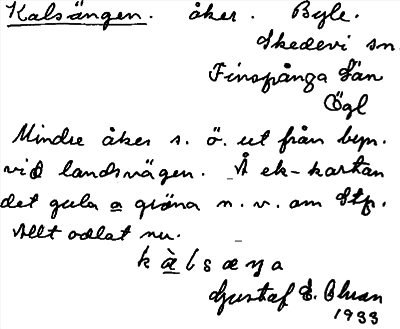 Kalsängen. åker. Byle.
Skedevi sn.
Finspånga län
Ögl
Mindre åker s. ö. ut från byn.
vid landsvägen. Å ek-kartan
det gula o gröna n. v. om Stp.
Allt odlat nu.
kàlsæŋa
Gustaf E. Bluan
1933